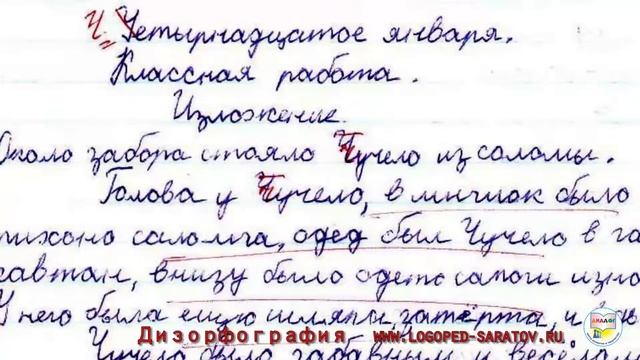 Ч Четырнадцатое января.
Классная работа.
Изложение.
Около забора стояло Чучело из соломы.
Голова у Чучело, в мичиок было
пихоно саломга, одед был Чучело в га
кавтан, внизу было одето сапоги изно
У него была ещу шляпи затёрта, и
Чучело было забавным и весела
Дизорфография www.LOGOPED-SARATOV.RU